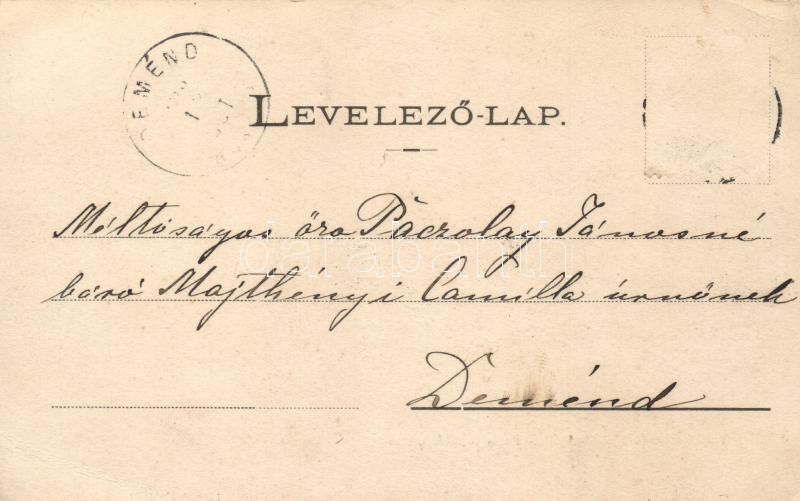 DEMÉND
LEVELEZŐ-LAP.
Méltóságos őro Páczolay Jánosné
báró Majthényi Camilla úrnőnek
Deménd
darabanth